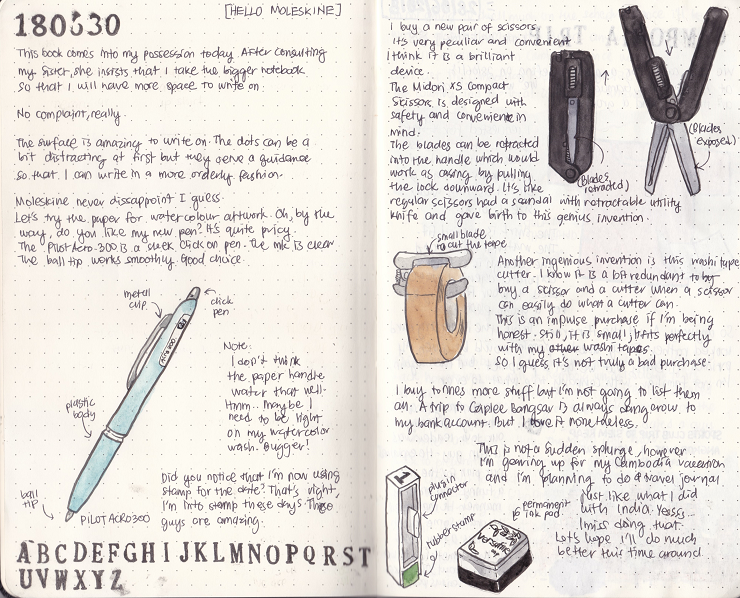 180530
[HELLO MOLESKINE]
This book comes into my possession today. After consulting
my sister, she insists that I take the bigger notebook
so that I will have more space to write on.
No complaint, really.
The surface is amazing to write on. The dots can be a
bit distracting at first but they serve a guidance
so that I can write in a more orderly fashion.
Moleskine never dissapoint I guess.
Let's try the paper for watercolour artwork. Oh, by the
way, do you like my new pen? It's quite pricy.
The Pilot Acro-300 is a sleek click on pen. The ink is clear
The ball tip works smoothly. Good choice.
metal
clip
click
pen
Note:
I don't think
the paper handle
water that well.
Hmm.. Maybe I
need to be light
on my watercolor
wash. Bugger!
plastic
body
ball
tip
PILOT ACRO300
Did you notice that I'm now using
stamp for the date? That's right,
I'm into stamp these days. These
guys are amazing.
ABCDEFGHIJKLMNOPQRST
UVWXYZ
I buy a new pair of scissors.
It's very peculiar and convenient
I think it is a brilliant
device.
The Midori XS compact
Scissors is designed with
safety and convenience in
mind.
The blades can be retracted
into the handle which would
work as casing by pulling
the lock downward. It's like
regular scissors had a scandal with retractable utility
knife and gave birth to this genius invention.
(Blades
retracted)
(Blades
exposed)
small blade
to cut the tape
Another ingenious invention is this washi tape
cutter. I know it is a bit redundant to by
buy a scissor and a cutter when a scissor
can easily do what a cutter can.
This is an impulse purchase if I'm being
honest. Still, it is small, fits perfectly
with my other washi tapes.
So I guess it's not truly a bad purchase.
I buy tonnes more stuff but I'm not going to list them
all. A trip to Caplee Bangsar is always dangerous to
my bank account. But I love it nonetheless.
This is not a sudden splurge, however
I'm gearing up for my Cambodia vacation
and I'm planning to do a travel journal
just like what I did
with India. Yesss..
I miss doing that.
Let's hope I'll do much
better this time around.
1
plugin
connector
rubber stamp
permanent
ink pad
versafine